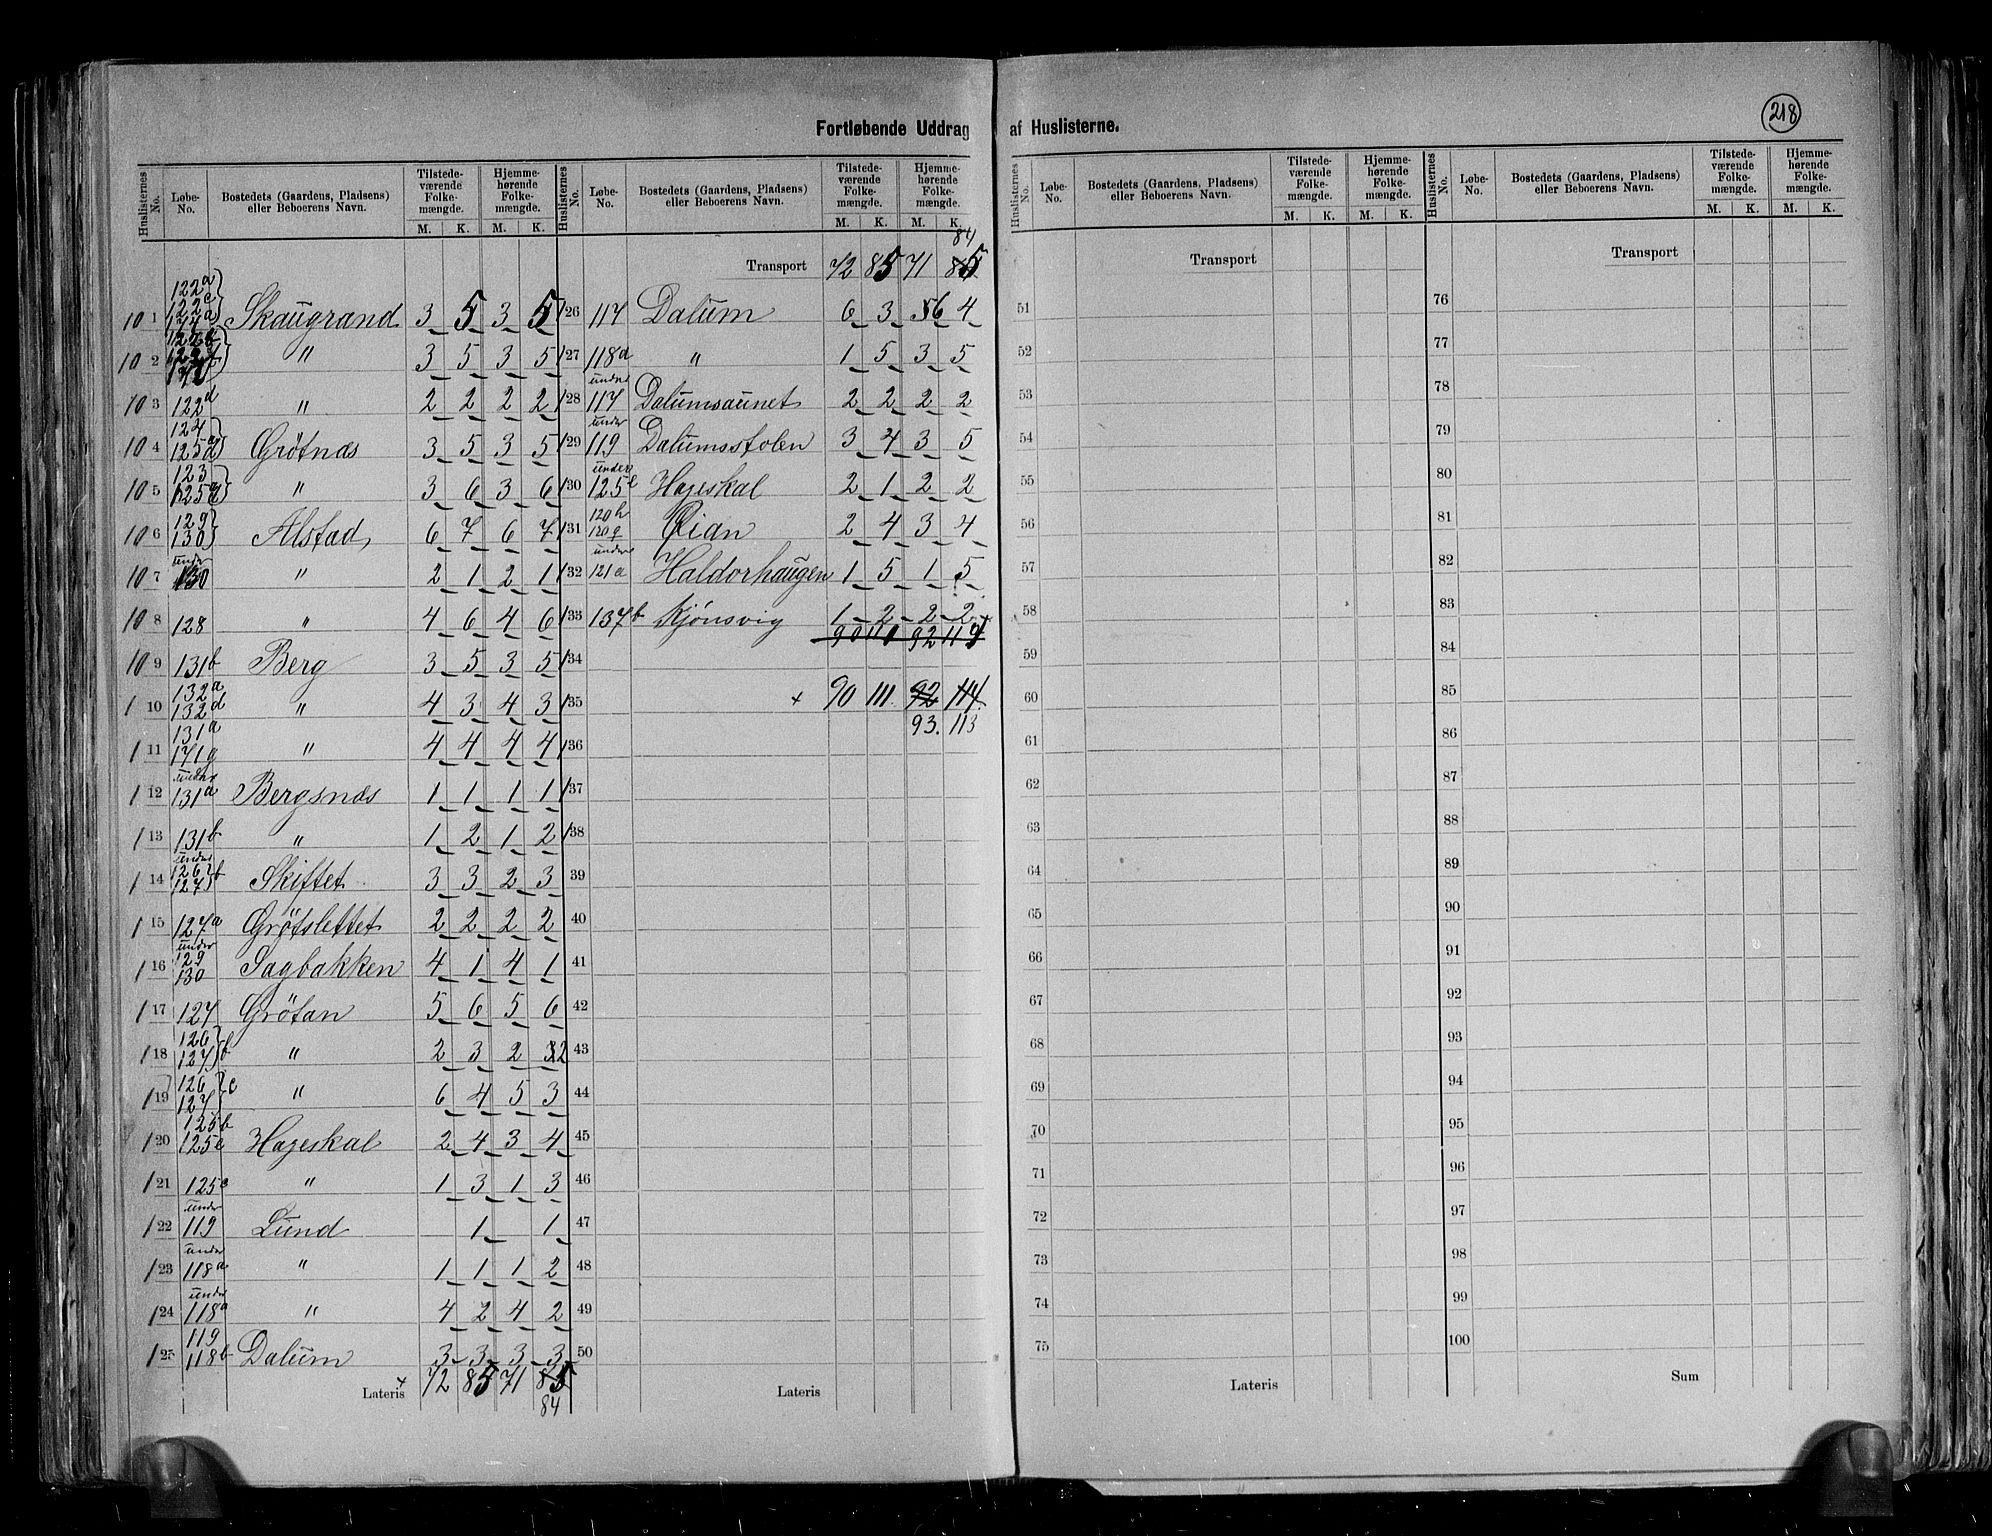 218
Fortløbende Uddrag af Huslisterne.
Huslisternes No. Løbe-No. Bostedets (Gaardens, Pladsens) eller Beboerens Navn. Tilstedeværende Folkemængde. Hjemmehørende Folkemængde. M. K. M. K.
Huslisternes No. Løbe-No. Bostedets (Gaardens, Pladsens) eller Beboerens Navn. Tilstedeværende Folkemængde. Hjemmehørende Folkemængde. M. K. M. K.
101 122a 122c Skaugrand 3 5 3 5
102 " 3 5 3 5
103 122d " 2 2 2 2
104 124 125d Grøtnæs 3 5 3 5
105 123 125 " 3 6 3 6
106 129 130 Alstad 6 7 6 7
107 under 130 " 2 1 2 1
108 128 " 4 6 4 6
109 131b Berg 3 5 3 5
110 132a 132d " 4 3 4 3
111 131a 171g " 4 4 4 4
112 under 131a Bergsnæs 1 1 1 1
113 131b " 1 2 1 2
114 under 126 127 b Skiftet 3 3 2 3
115 127a Grøtslettet 2 2 2 2
116 under 129 130 Sagbakken 4 1 4 1
117 127 Grötan 5 6 5 6
118 126 127 b " 2 3 2 32
119 126 127 c " 6 4 5 3
120 125b 125e Hajeskal 2 4 3 4
121 125c " 1 3 1 3
122 under 119 Lund 1 1
123 under 118a " 1 1 1 2
124 under 118a " 4 2 4 2
125 119 118b Dalum 3 3 3 3
Lateris 72 85 71 85
84
84
Transport 72 85 71 85
126 117 Dalum 6 3 56 4
127 118a " 1 5 3 5
128 under 117 Dalumsaunet 2 2 2 2
129 under 119 Dalumsstolen 3 4 3 5
130 under 125e Hajeskal 2 1 2 2
131 120h 120g Øian 2 4 3 4
132 under 121a Haldorhaugen 1 5 1 5
133 137b Kjønsvig 1 2 2 2
90 110 92 114
134
135 + 90 111 92 114
93. 113
136
137
138
39
40
41
42
43
44
45
46
47
48
49
50
Lateris
Huslisternes No. Løbe-No. Bostedets (Gaardens, Pladsens) eller Beboerens Navn. Tilstedeværende Folkemængde. Hjemmehørende Folkemængde. M. K. M. K.
Transport
51
52
53
54
55
56
57
58
59
60
61
62
63
64
65
66
67
68
69
70
71
72
73
74
75
Lateris
Huslisternes No. Løbe-No. Bostedets (Gaardens, Pladsens) eller Beboerens Navn. Tilstedeværende Folkemængde. Hjemmehørende Folkemængde. M. K. M. K.
Transport
76
77
78
79
80
81
82
83
84
85
86
87
88
89
90
91
92
93
94
95
96
97
98
99
100
Sum